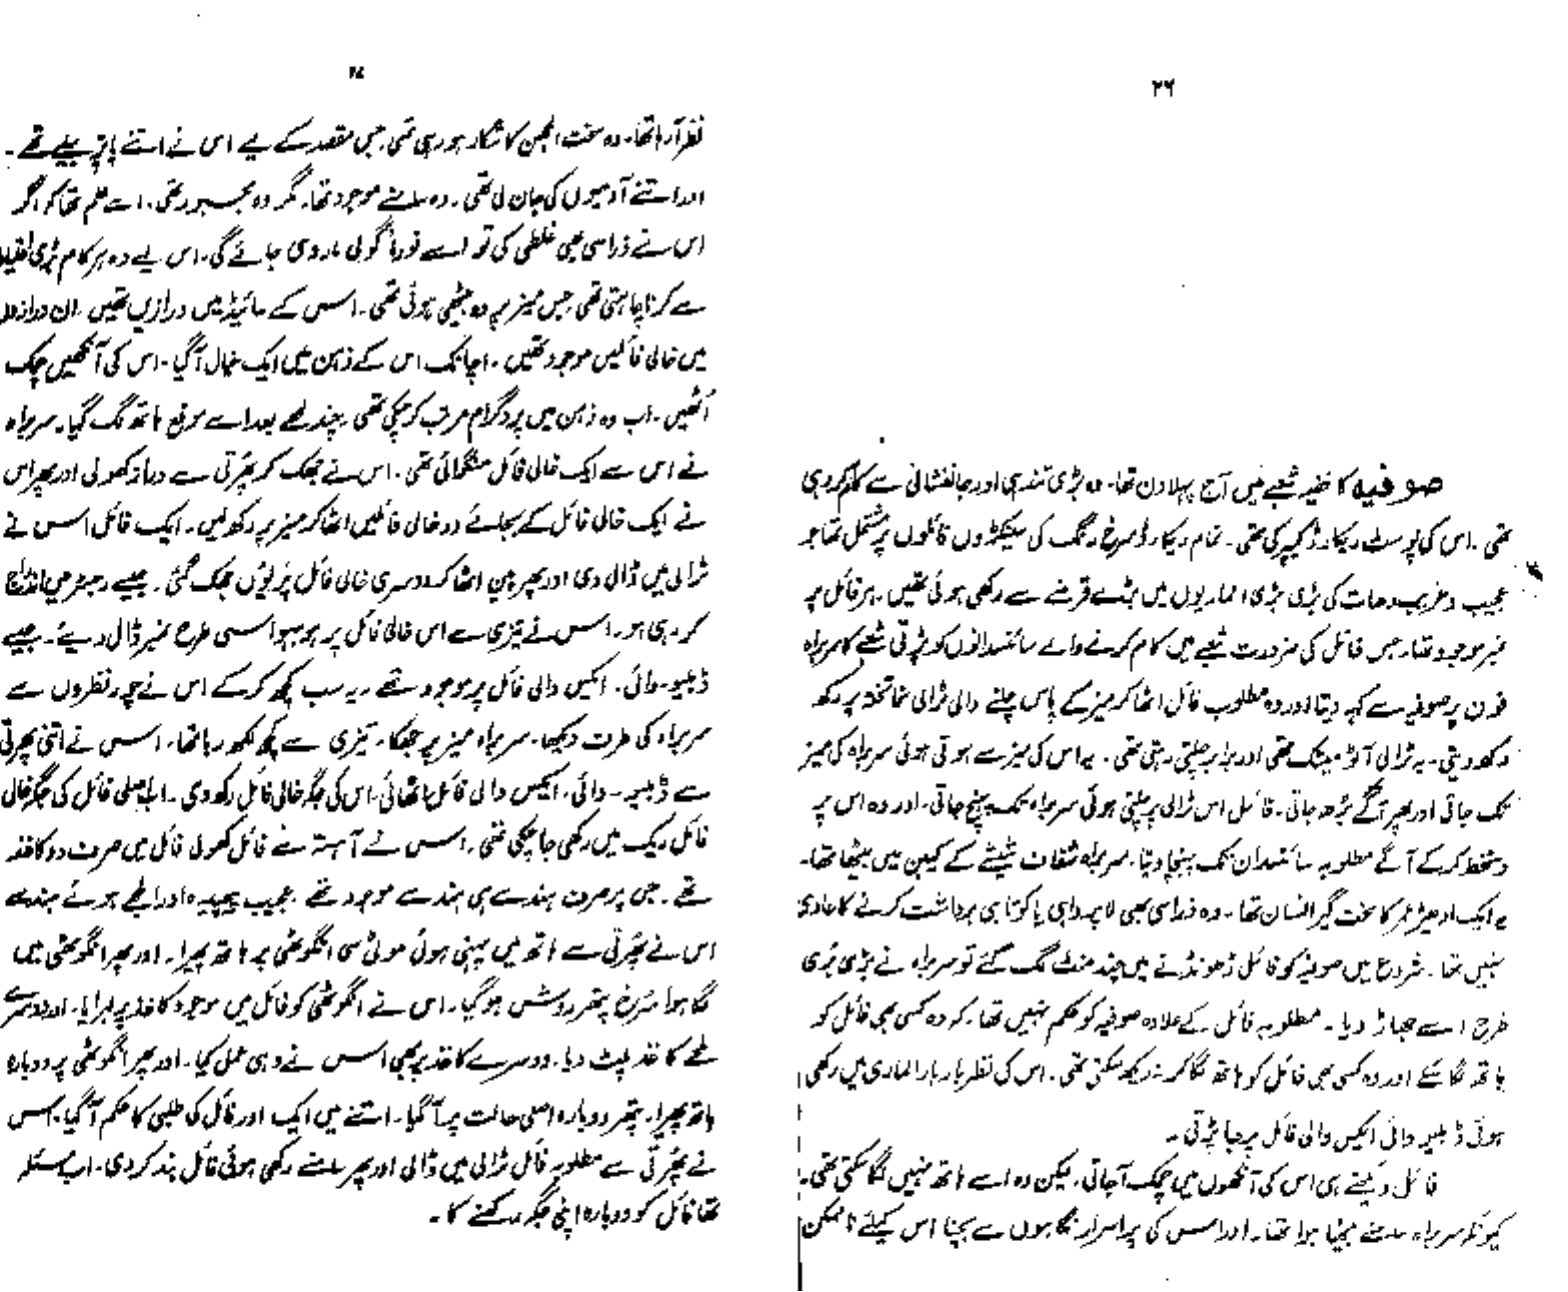 ۲۶
صوفیہ کا خفیہ شعبے میں آج پہلا دن تھا۔ وہ بڑی تندہی اور جانفشانی سے کام کر رہی
تھی۔ اس کی پوسٹ ریکارڈ کیپر کی تھی۔ تمام ریکارڈ سرخ رنگ کی سینکڑوں فائلوں پر مشتمل تھا جو
عجیب و غریب دھات کی بڑی بڑی الماریوں میں بڑے قرینے سے رکھی ہوئی تھیں۔ ہر فائل پر
نمبر موجود تھا۔ جس فائل کی ضرورت شعبے میں کام کرنے والے سائنسدانوں کو پڑتی شعبے کا سربراہ
فون پر صوفیہ سے کہہ دیتا اور وہ مطلوبہ فائل اٹھا کر میز کے پاس چلنے والی ٹرالی نما تختہ پر رکھ
رکھ دیتی۔ یہ ٹرالی آٹومیٹک تھی اور برابر چلتی رہتی تھی۔ یہ اس کی میز سے ہوتی ہوئی سربراہ کی میز
تک جاتی اور پھر آگے بڑھ جاتی۔ فائل اس ٹرالی پر چلتی ہوئی سربراہ تک پہنچ جاتی۔ اور وہ اس پر
دستخط کر کے آگے مطلوبہ سائنسدان تک پہنچا دیتا۔ سربراہ شفاف شیشے کے کیبن میں بیٹھا تھا۔
یہ ایک ادھیڑ عمر کا سخت گیر انسان تھا۔ وہ ذرا سی بھی لاپرواہی یا کوتاہی برداشت کرنے کا عادی
نہیں تھا۔ شروع میں صوفیہ کو فائل ڈھونڈنے میں چند منٹ لگ گئے تو سربراہ نے بڑی بری
طرح اسے جھاڑ دیا۔ مطلوبہ فائل کے علاوہ صوفیہ کو حکم نہیں تھا۔ کہ وہ کسی بھی فائل کو
ہاتھ لگا سکے اور وہ کسی بھی فائل کو ہاتھ لگا کر نہ دیکھ سکتی تھی۔ اس کی نظر بار بار الماری میں رکھی
ہوئی ڈبلیو وائی ایکس والی فائل پر جا پڑتی۔
فائل دیکھتے ہی اس کی آنکھوں میں چمک آ جاتی، لیکن وہ اسے ہاتھ نہیں لگا سکتی تھی۔
کیونکہ سربراہ سامنے بیٹھا ہوا تھا۔ اور اس کی پراسرار نگاہوں سے بچنا اس کیلئے ناممکن
نظر آ رہا تھا۔ وہ سخت الجھن کا شکار ہو رہی تھی۔ جس مقصد کے لیے اس نے اتنے پاپڑ بیلے تھے۔
اور اتنے آدمیوں کی جان لی تھی۔ وہ سامنے موجود تھا۔ مگر وہ مجبور تھی۔ اسے علم تھا کہ اگر
اس نے ذرا سی بھی غلطی کی تو اسے فوراً گولی مار دی جائے گی۔ اس لیے وہ ہر کام بڑی
سے کرنا چاہتی تھی۔ جس میز پر وہ بیٹھی ہوئی تھی۔ اس کے سائیڈ میں درازیں تھیں۔ ان درازوں
میں خالی فائلیں موجود تھیں۔ اچانک اس کے ذہن میں ایک خیال آ گیا۔ اس کی آنکھیں چمک
اُٹھیں۔ اب وہ ذہن میں پروگرام مرتب کر چکی تھی۔ چند لمحے بعد اسے موقع ہاتھ لگ گیا۔ سربراہ
نے اس سے ایک خالی فائل منگوائی تھی۔ اس نے جھک کر پھرتی سے دراز کھولی اور پھر اس
نے ایک خالی فائل کے بجائے دو خالی فائلیں اٹھا کر میز پر رکھ لیں۔ ایک فائل اس نے
ٹرالی میں ڈال دی اور پھر پین اٹھا کر دوسری خالی فائل پر یوں جھک گئی۔ جیسے رجسٹر میں اندراج
کر رہی ہو۔ اس نے تیزی سے اس خالی فائل پر ہو بہو اسی طرح نمبر ڈال دیئے۔ جیسے
ڈبلیو۔ وائی۔ ایکس والی فائل پر موجود تھے۔ یہ سب کچھ کر کے اس نے چور نظروں سے
سربراہ کی طرف دیکھا۔ سربراہ میز پر جھکا۔ تیزی سے کچھ لکھ رہا تھا۔ اس نے اتنی پھرتی
سے ڈبلیو۔ وائی۔ ایکس والی فائل اٹھائی، اس کی جگہ خالی فائل رکھ دی۔ اب اصلی فائل کی جگہ خالی
فائل ریک میں رکھی جا چکی تھی۔ اس نے آہستہ سے فائل کھولی فائل میں صرف دو کاغذ
تھے۔ جس پر صرف ہندسے ہی ہندسے موجود تھے۔ عجیب پیچیدہ اور الجھے ہوئے ہندسے
اس نے پھرتی سے ہاتھ میں پہنی ہوئی موٹی سی انگوٹھی پر ہاتھ پھیرا۔ اور پھر انگوٹھی میں
لگا ہوا سرخ پتھر روشن ہو گیا۔ اس نے انگوٹھی کو فائل میں موجود کاغذ پر لہرایا۔ اور دوسرے
لمحے کاغذ پلٹ دیا۔ دوسرے کاغذ پر بھی اس نے وہی عمل کیا۔ اور پھر انگوٹھی پر دوبارہ
ہاتھ پھیرا۔ پتھر دوبارہ اصلی حالت پر آ گیا۔ اتنے میں ایک اور فائل کی طلبی کا حکم آ گیا۔ اس
نے پھرتی سے مطلوبہ فائل ٹرالی میں ڈالی اور پھر سامنے رکھی ہوئی فائل بند کر دی۔ اب مسئلہ
تھا فائل کو دوبارہ اپنی جگہ رکھنے کا۔